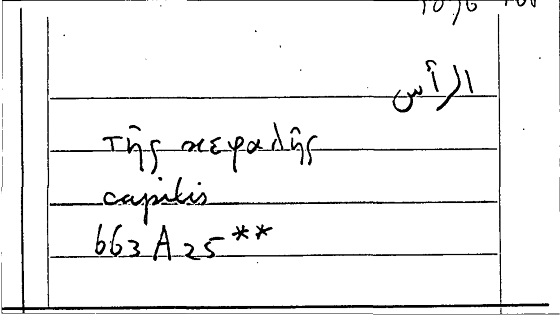 الرأس
τῆς κεφαλῆς
capitis
663 A 25**